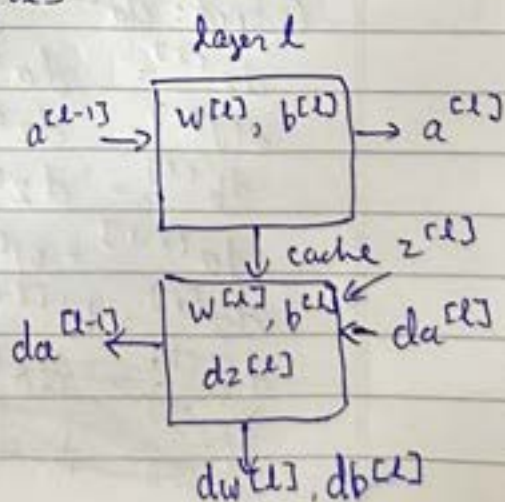 layer l
a^[l-1] → w^[l], b^[l] → a^[l]
cache z^[l]
w^[l], b^[l]
da^[l-1] ← ← da^[l]
dz^[l]
dw^[l], db^[l]